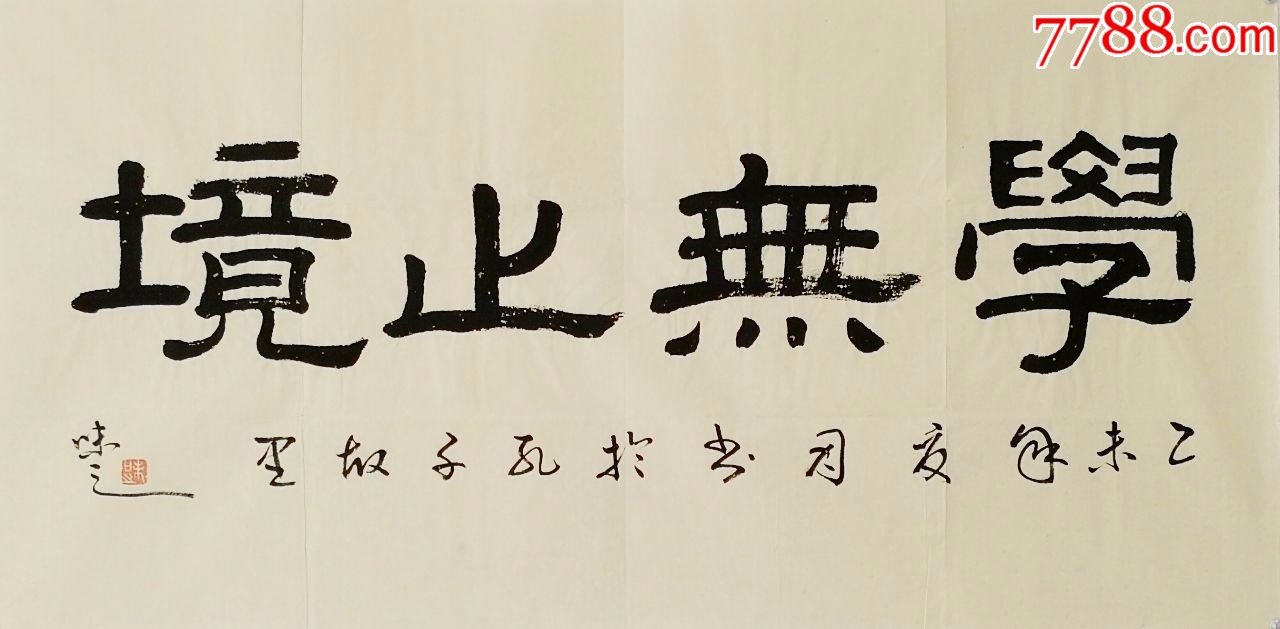 7788.com
學無止境
乙未年夏月书於孔子故里